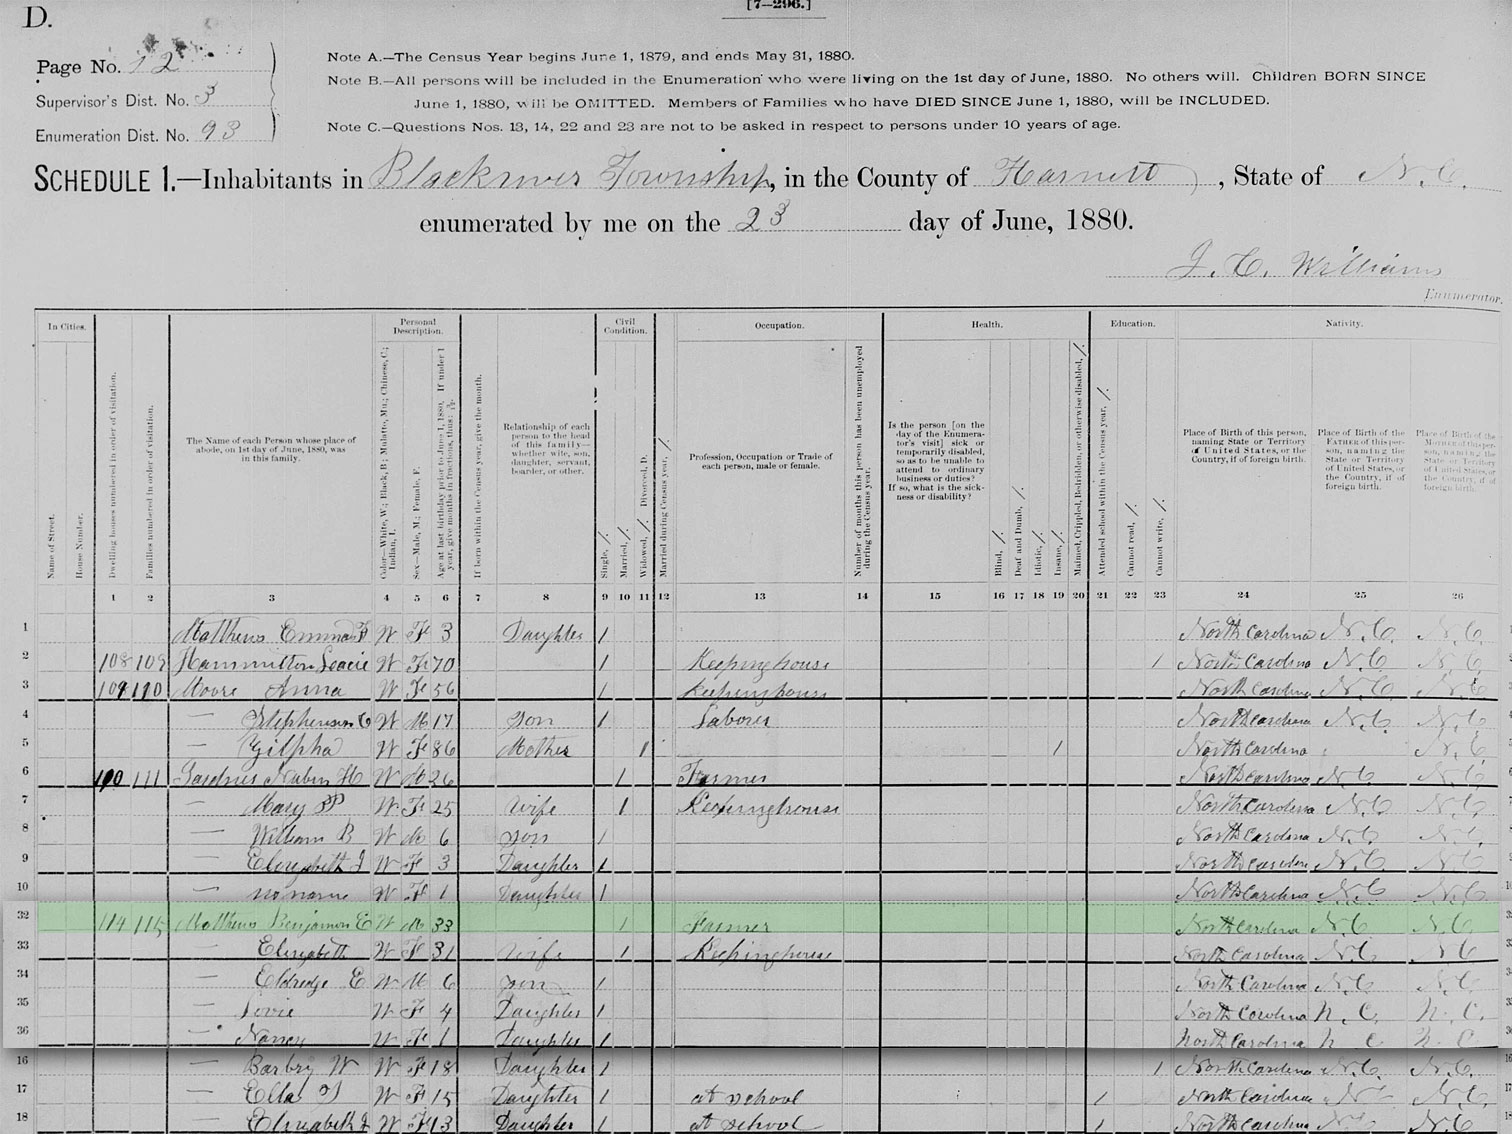 D.
[7—296.]
Page No. 12
Supervisor's Dist. No. 3
Enumeration Dist. No. 93
Note A.—The Census Year begins June 1, 1879, and ends May 31, 1880.
Note B.—All persons will be included in the Enumeration who were living on the 1st day of June, 1880. No others will. Children BORN SINCE
June 1, 1880, will be OMITTED. Members of Families who have DIED SINCE June 1, 1880, will be INCLUDED.
Note C.—Questions Nos. 13, 14, 22 and 23 are not to be asked in respect to persons under 10 years of age.
SCHEDULE 1.—Inhabitants in Blackriver Township, in the County of Harnett, State of N.C.
enumerated by me on the 23 day of June, 1880.
J. C. Williams
Enumerator.
In Cities. Personal Description. Civil Condition. Occupation. Health. Education. Nativity.
Name of Street.
House Number.
Dwelling houses numbered in order of visitation.
Families numbered in order of visitation.
The Name of each Person whose place of abode, on 1st day of June, 1880, was in this family.
Color—White, W; Black, B; Mulatto, Mu; Chinese, C; Indian, I.
Sex—Male, M; Female, F.
Age at last birthday prior to June 1, 1880. If under 1 year, give months in fractions, thus:
If born within the Census year, give the month.
Relationship of each person to the head of this family—whether wife, son, daughter, servant, boarder, or other.
Single, /.
Married, /.
Widowed, /. Divorced, D.
Married during Census year, /.
Profession, Occupation or Trade of each person, male or female.
Number of months this person has been unemployed during the Census year.
Is the person [on the day of the Enumerator's visit] sick or temporarily disabled, so as to be unable to attend to ordinary business or duties? If so, what is the sickness or disability?
Blind, /.
Deaf and Dumb, /.
Idiotic, /.
Insane, /.
Maimed, Crippled, Bedridden, or otherwise disabled, /.
Attended school within the Census year, /.
Cannot read, /.
Cannot write, /.
Place of Birth of this person, naming State or Territory of United States, or the Country, if of foreign birth.
Place of Birth of the FATHER of this person, naming the State or Territory of United States, or the Country, if of foreign birth.
Place of Birth of the MOTHER of this person, naming the State or Territory of United States, or the Country, if of foreign birth.
1 2 3 4 5 6 7 8 9 10 11 12 13 14 15 16 17 18 19 20 21 22 23 24 25 26
1 Matthews Emma F W F 3 Daughter / North Carolina N.C. N.C.
2 108 109 Hammilton W F 70 / Keeping house / North Carolina N.C N.C
3 109 110 Moore Anna W F 56 / Keeping house North Carolina N.C N.C
4 — Stephenson C W M 17 Son / Laborer North Carolina N.C N.C
5 — W F 86 Mother / / North Carolina N.C
6 110 111 H W M 26 / Farmer North Carolina N.C N.C
7 — Mary W F 25 Wife / Keeping house North Carolina N.C N.C
8 — William B W M 6 Son / North Carolina N.C N.C
9 — Elizabeth J W F 3 Daughter / North Carolina N.C N.C
10 — no name W F 1 Daughter / North Carolina N.C N.C
32 114 115 Matthews Benjamin E W M 33 / Farmer North Carolina N.C N.C
33 Elizabeth W F 31 Wife / Keeping house North Carolina N.C N C
34 — Eldredge E W M 6 son / North Carolina N.C N.C
35 — Lovie W F 4 Daughter / North Carolina N. C. N. C.
36 — Nancy W F 1 Daughter / North Carolina N C N C
16 — Barbry W W F 18 Daughter / / North Carolina N.C. N.C.
17 — Ella W F 15 Daughter / at school / North Carolina N.C N.C
18 — Elizabeth J W F 13 Daughter / at school / North Carolina N.C N.C